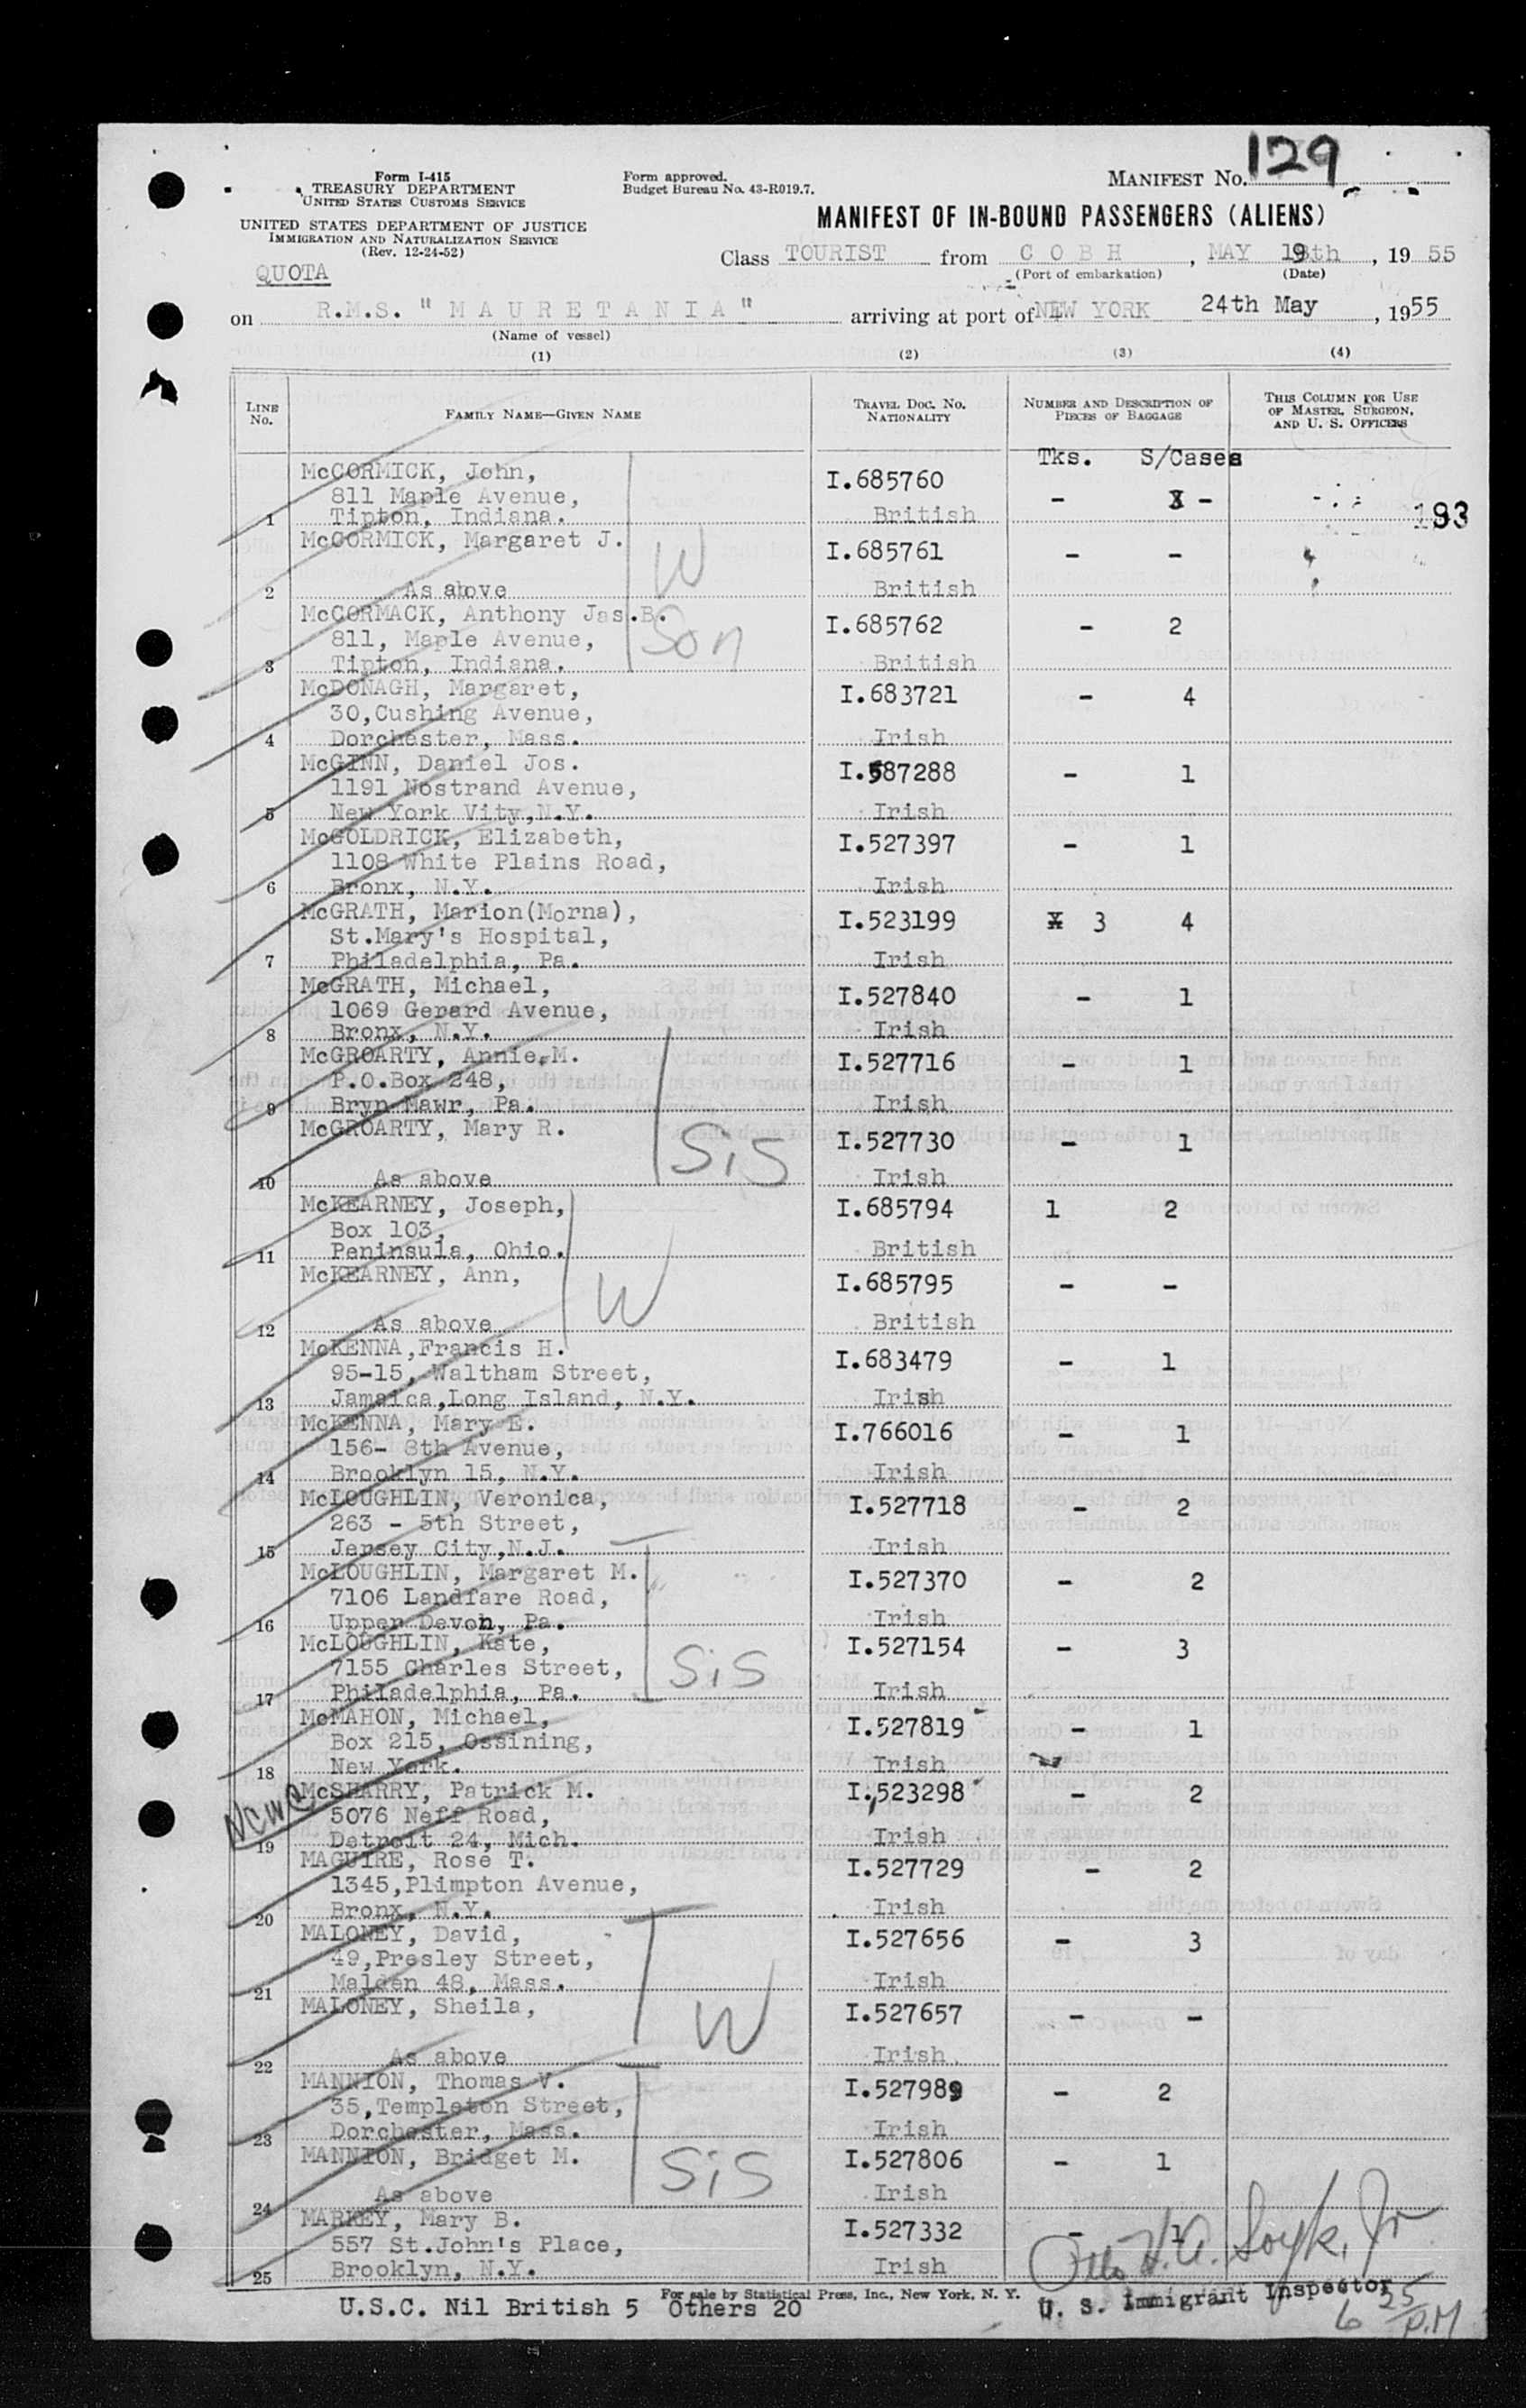 129
Form I-415
TREASURY DEPARTMENT
UNITED STATES CUSTOMS SERVICE
Form approved.
Budget Bureau No. 43-R019.7.
MANIFEST No.
UNITED STATES DEPARTMENT OF JUSTICE
IMMIGRATION AND NATURALIZATION SERVICE
(Rev. 12-24-52)
MANIFEST OF IN-BOUND PASSENGERS (ALIENS)
QUOTA
Class TOURIST from C O B H, MAY 19th, 1955
(Port of embarkation) (Date)
on R.M.S. "M A U R E T A N I A" arriving at port of NEW YORK 24th May, 1955
(Name of vessel)
(1) (2) (3) (4)
LINE No. FAMILY NAME—GIVEN NAME TRAVEL DOC. No. NATIONALITY NUMBER AND DESCRIPTION OF PIECES OF BAGGAGE THIS COLUMN FOR USE OF MASTER, SURGEON, AND U. S. OFFICERS
Tks. S/Cases
McCORMICK, John, I.685760
811 Maple Avenue, - X -
1 Tipton, Indiana. British 193
McCORMICK, Margaret J. I.685761 - -
W
2 As above British
McCORMACK, Anthony Jas.B. I.685762 - 2
811, Maple Avenue, Son
3 Tipton, Indiana. British
McDONAGH, Margaret, I.683721 - 4
30,Cushing Avenue,
4 Dorchester, Mass. Irish
McGINN, Daniel Jos. I.587288 - 1
1191 Nostrand Avenue,
5 New York Vity,N.Y. Irish
McGOLDRICK, Elizabeth, I.527397 - 1
1108 White Plains Road,
6 Bronx, N.Y. Irish
McGRATH, Marion(Morna), I.523199 X 3 4
St.Mary's Hospital,
7 Philadelphia, Pa. Irish
McGRATH, Michael, I.527840 - 1
1069 Gerard Avenue,
8 Bronx, N.Y. Irish
McGROARTY, Annie M. I.527716 - 1
P.O.Box 248,
9 Bryn Mawr, Pa. Irish
McGROARTY, Mary R. I.527730 - 1
Sis
10 As above Irish
McKEARNEY, Joseph, I.685794 1 2
Box 103,
11 Peninsula, Ohio. British
McKEARNEY, Ann, I.685795 - -
W
12 As above British
McKENNA,Francis H. I.683479 - 1
95-15, Waltham Street,
13 Jamaica,Long Island, N.Y. Irish
McKENNA, Mary E. I.766016 - 1
156- 8th Avenue,
14 Brooklyn 15, N.Y. Irish
McLOUGHLIN, Veronica, I.527718 - 2
263 - 5th Street,
15 Jersey City,N.J. Irish
McLOUGHLIN, Margaret M. I.527370 - 2
7106 Landfare Road,
16 Upper Devon, Pa. Irish
McLOUGHLIN, Kate, I.527154 - 3
7155 Charles Street, Sis
17 Philadelphia, Pa. Irish
McMAHON, Michael, I.527819 - 1
Box 215, Ossining,
18 New York. Irish
McSHARRY, Patrick M. I.523298 - 2
NCWC 5076 Neff Road,
19 Detroit 24, Mich. Irish
MAGUIRE, Rose T. I.527729 - 2
1345,Plimpton Avenue,
20 Bronx, N.Y. Irish
MALONEY, David, I.527656 - 3
49,Presley Street,
21 Malden 48, Mass. Irish
MALONEY, Sheila, I.527657 - -
W
22 As above Irish
MANNION, Thomas V. I.527989 - 2
35,Templeton Street,
23 Dorchester, Mass. Irish
MANNION, Bridget M. I.527806 - 1
Sis
24 As above Irish
MARKEY, Mary B. I.527332 - 1
557 St.John's Place,
25 Brooklyn, N.Y. Irish
For sale by Statistical Press, Inc., New York, N. Y.
U.S.C. Nil British 5 Others 20
U. S. Immigrant Inspector
6 25 P.M